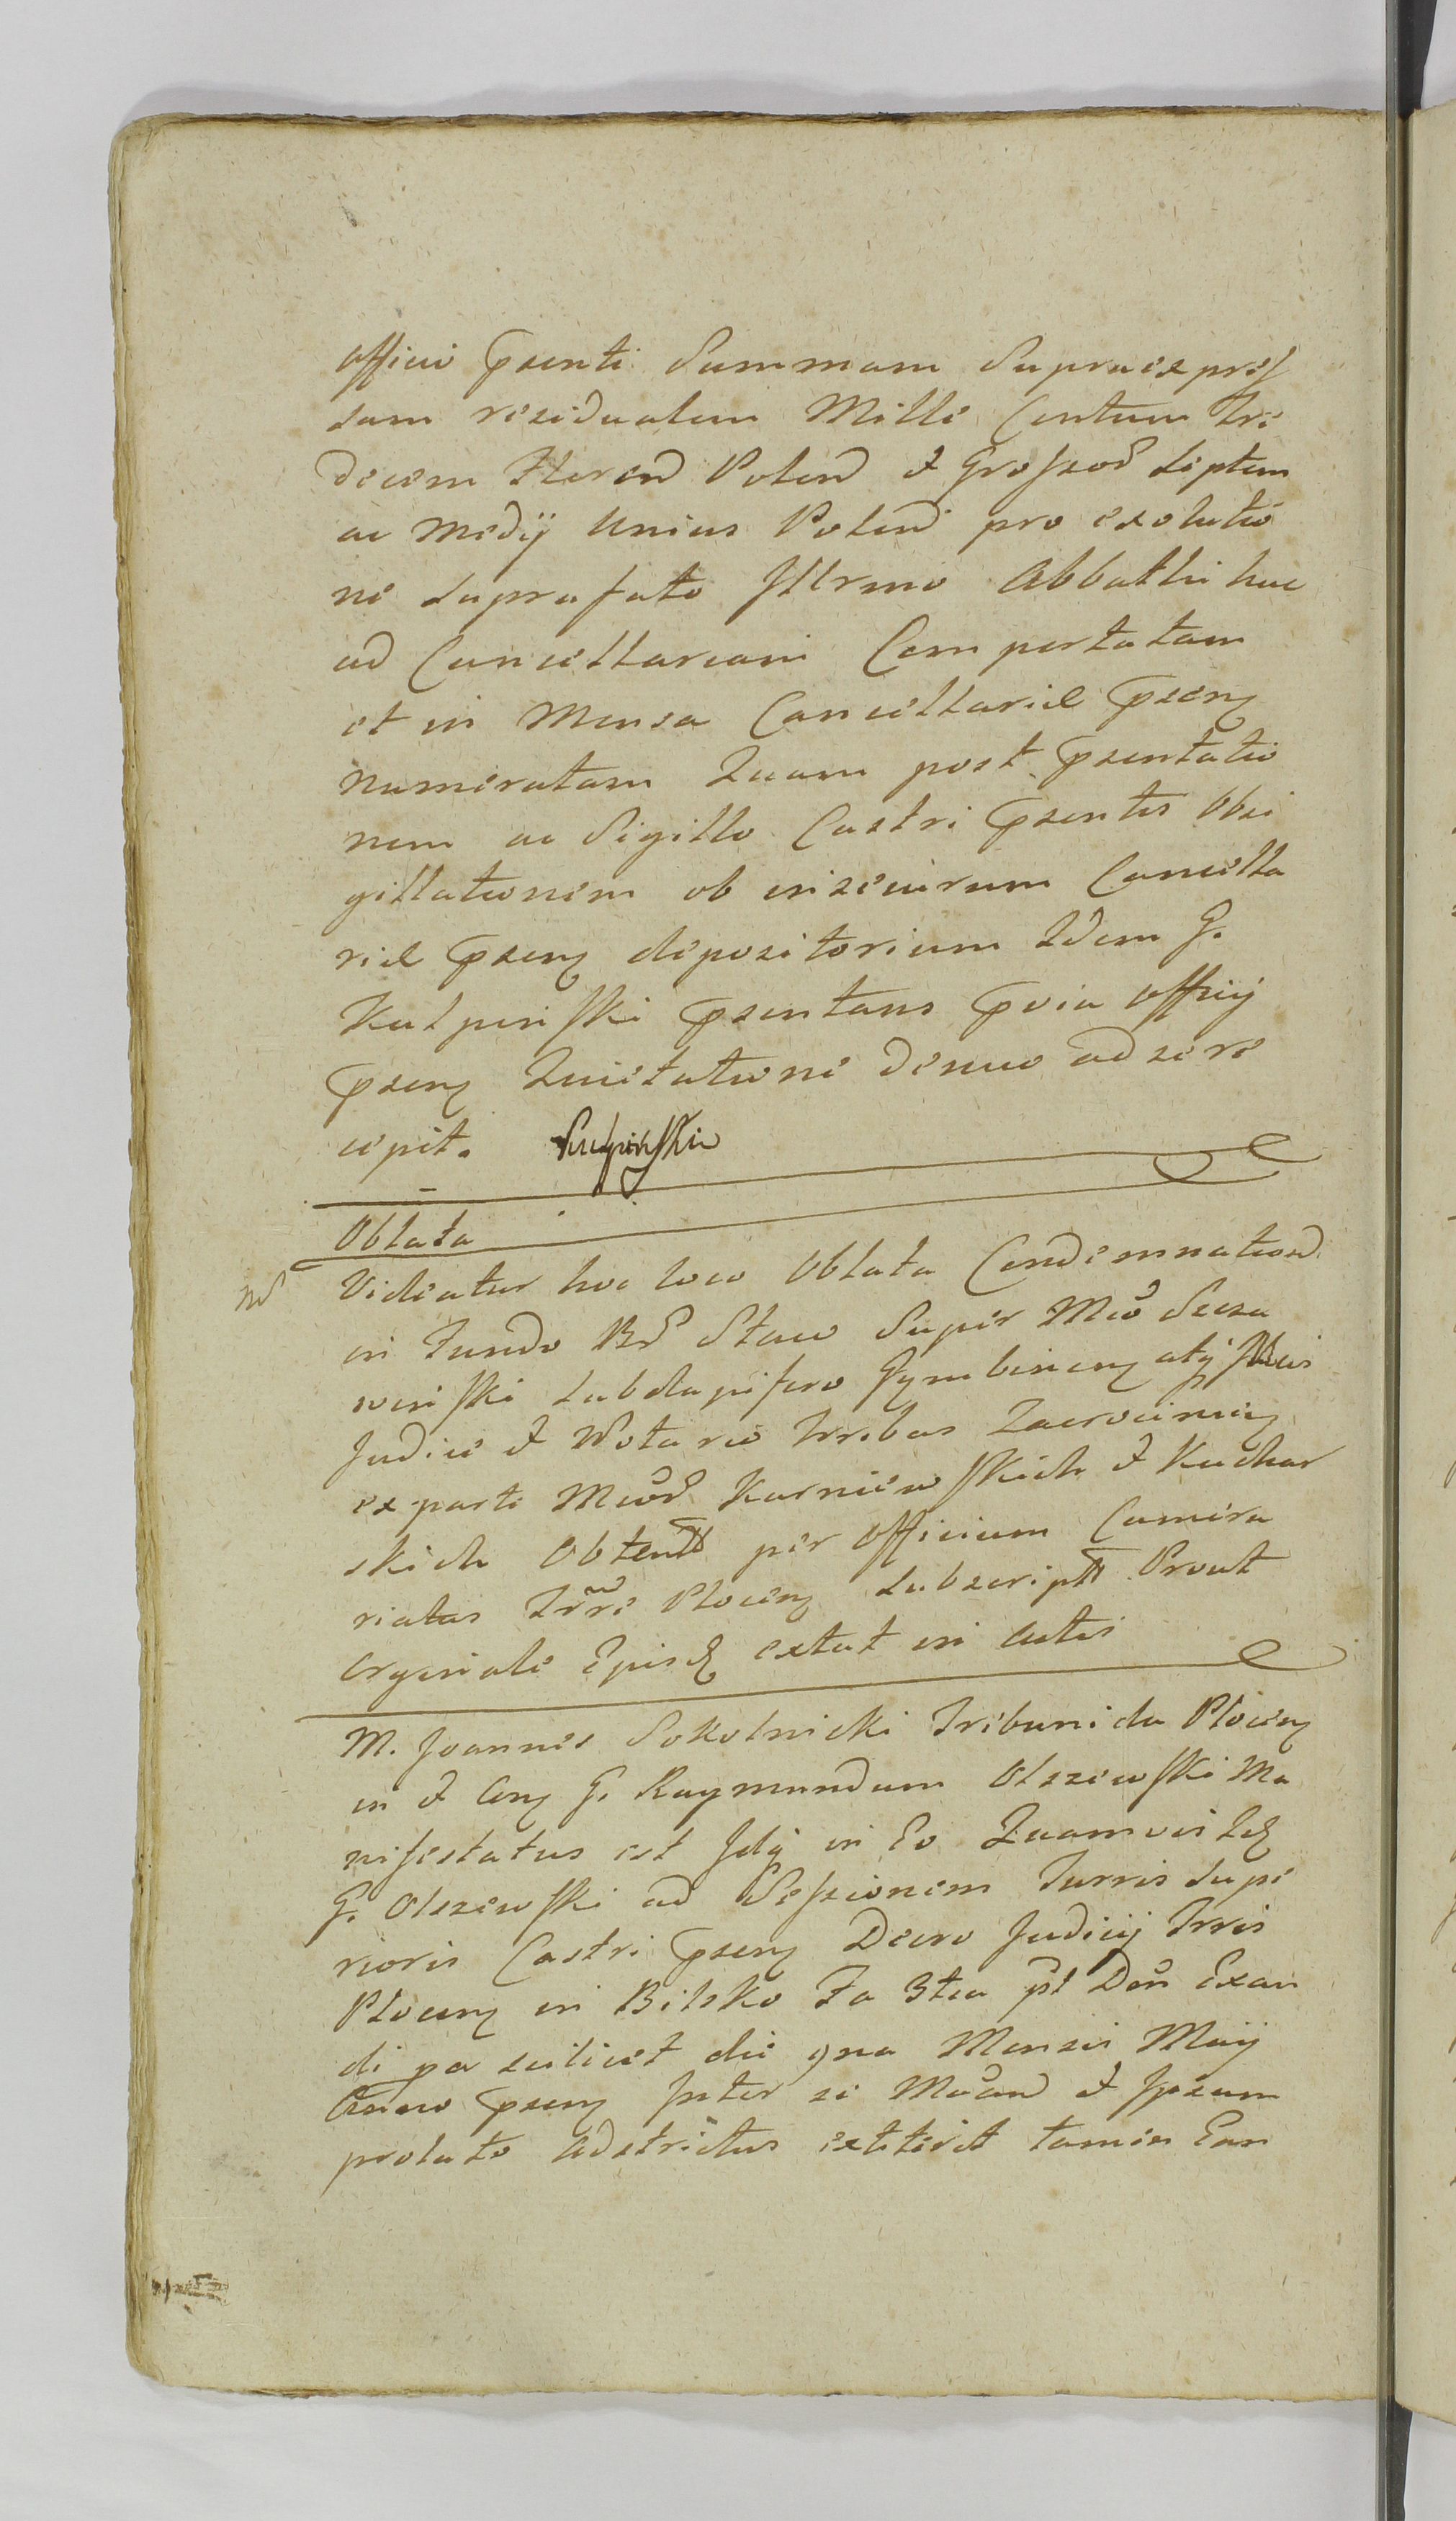 Officio Pnti Summam Supraexpres
sam residualem Mille Centum Tre
decem Floren Polon et Grossor Septem
ac Medij Unius Polon pro exolutio
ne Suprafato Illrmo Abbatti huc
ad Cancellariam Comportatam
et in Mensa Cancellariæ Psen
numeratam Quam post Psentatio
nem ac Sigillo Castri Psentis Obsi
gillationem ob Cancella
riæ Psen depositorium Idem G.
Kulpinski Psentans Pvia Officij
Psen Quietatione denuo ad se re
cepit. Kulpinski
Oblata
Videatur hoc loco Oblata Condemnation
in Fundo Bo Staw Super Mco
Subdapifero Gymbinen
Judice et Notario Trribus Zacrocimien
ex parte Mcor Karniewskich et Kuchar
skich Obtent per Officium Camera
riatus Trre Plocen Subscript Prout
Orginale Ejusd extat in Actis
M. Joannes Sokolnicki Tribunida Plocen
in et Con G. Raymundum Olszewski Ma
nifestatus est Idq in Eo Quamvis Id
G. Olszewski ad Sessionem Turris Supe
rioris Castri Psen Decro Judicij Trris
Plocen in Bilsko Fa 3tia pt Don Exau
di pa scilicet die 9na Mensis Maij
Anno Psen Inter se Mcan et Ipsum
prolato Adstrictus extiterit tamen Ean